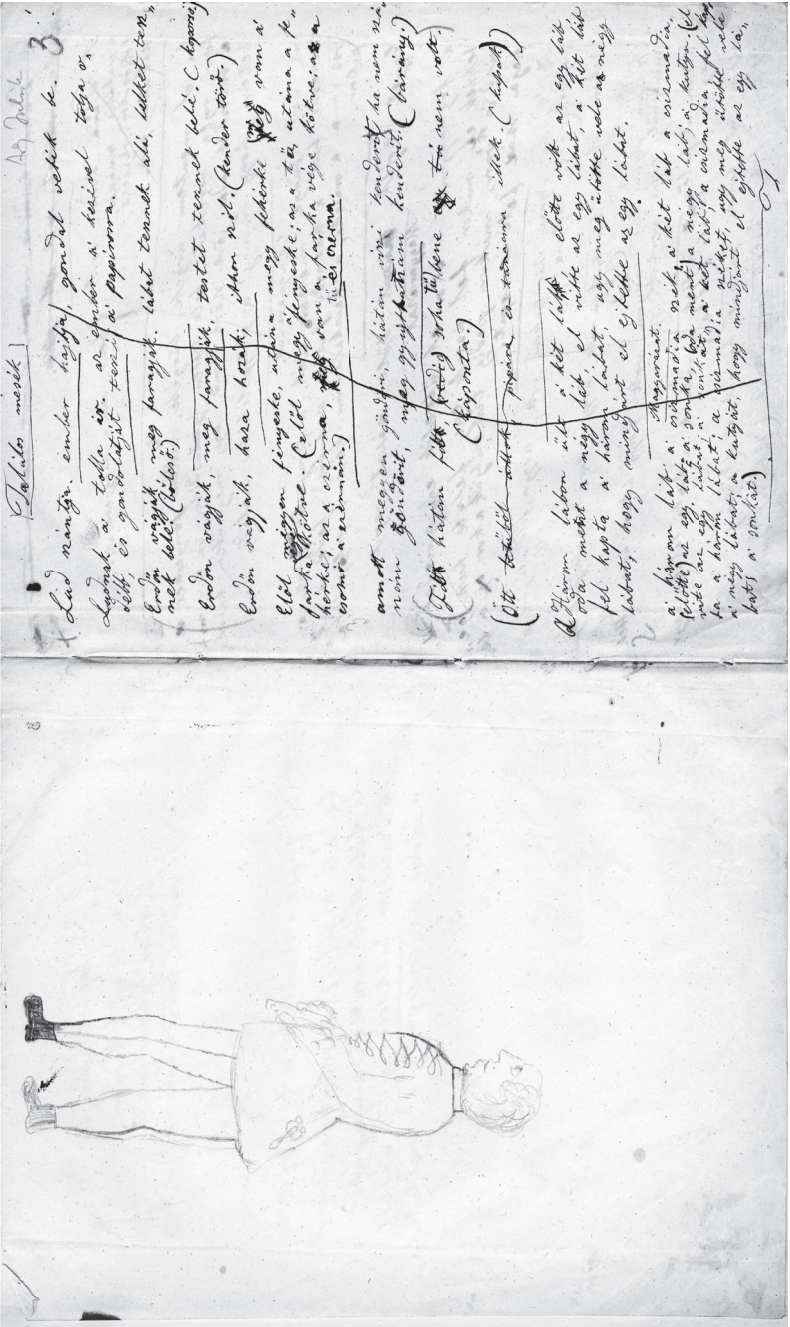 3
Találós mesék
Lud szántja, ember hajtja, gondal vetik be.
Ludnak a tolla az ember a kezivel tolja o„
délt, és gondolatját teszi a papirosra.
Erdőn vágják meg faragják. lábat tesznek alá, lelket tesz„
nek belé. (bölcső)
Erdőn vágják, meg faragják, testet tesznek belé. (koporsó)
Erdőn vágják, haza hozák, ithon szól. (kender törő.)
Elöl megyen fényeske, utána megy fehérke van a
farka kötve. (elöl megy fényeske; az a tű, utána a fe„
hérke; az a czérna, van a farka vége kötve; az a
csomó a czérnán.)
tű és czerna.
amott megyen göndöri, hátán viszi kenderit ha nem szá„
nom göndörit, meg gyujtanám kenderit. (bárány.)
(Tött hátán fótt, pedig soha tű benne nem volt.
(káposzta.)
(Ött pipára és tánczra illik. (kapat.))
Három lábon ült a két láb előtte volt az egy láb
oda ment a négy láb, el vitte az egy lábat, a két láb
fel kapta a három lábat, ugy meg ütötte vele a négy
lábat, hogy mingyárt el ejtette az egy lábat.
Magyarázat.
a három láb a csizmadia szék, a két láb a csizmadia,
(előtte) az egy láb a sonka, (oda ment) a négy láb; a kutya, (el
vitte az egy lábat a sonkát) a két láb a csizmadia fel kap„
ta a három lábat, a csizmadia széket, ugy meg ütötte vele
a négy lábat, a kutyát, hogy mindjárt el ejtette az egy lá„
bat; a sonkát.)